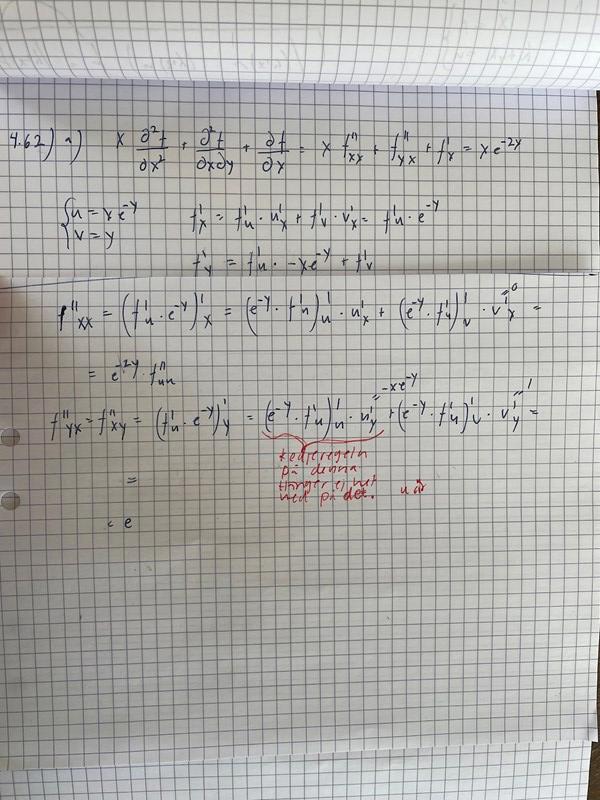 4.62) a) x ∂²f/∂x² + ∂²f/∂x∂y + ∂f/∂x = x f''xx + f''yx + f'x = x e^-2y
{ u = x e^-y
v = y
f'x = f'u · u'x + f'v · v'x = f'u · e^-y
f'y = f'u · -xe^-y + f'v
f''xx = (f'u · e^-y)'x = (e^-y · f'u)'u · u'x + (e^-y · f'u)'v · v'x =
= 0
= e^-2y · f''uu
f''yx = f''xy = (f'u · e^-y)'y = (e^-y · f'u)'u · u'y + (e^-y · f'u)'v · v'y =
= -xe^-y
= 1
kedjeregeln
på denna
Hänger ej net
ned på det.
=
= e